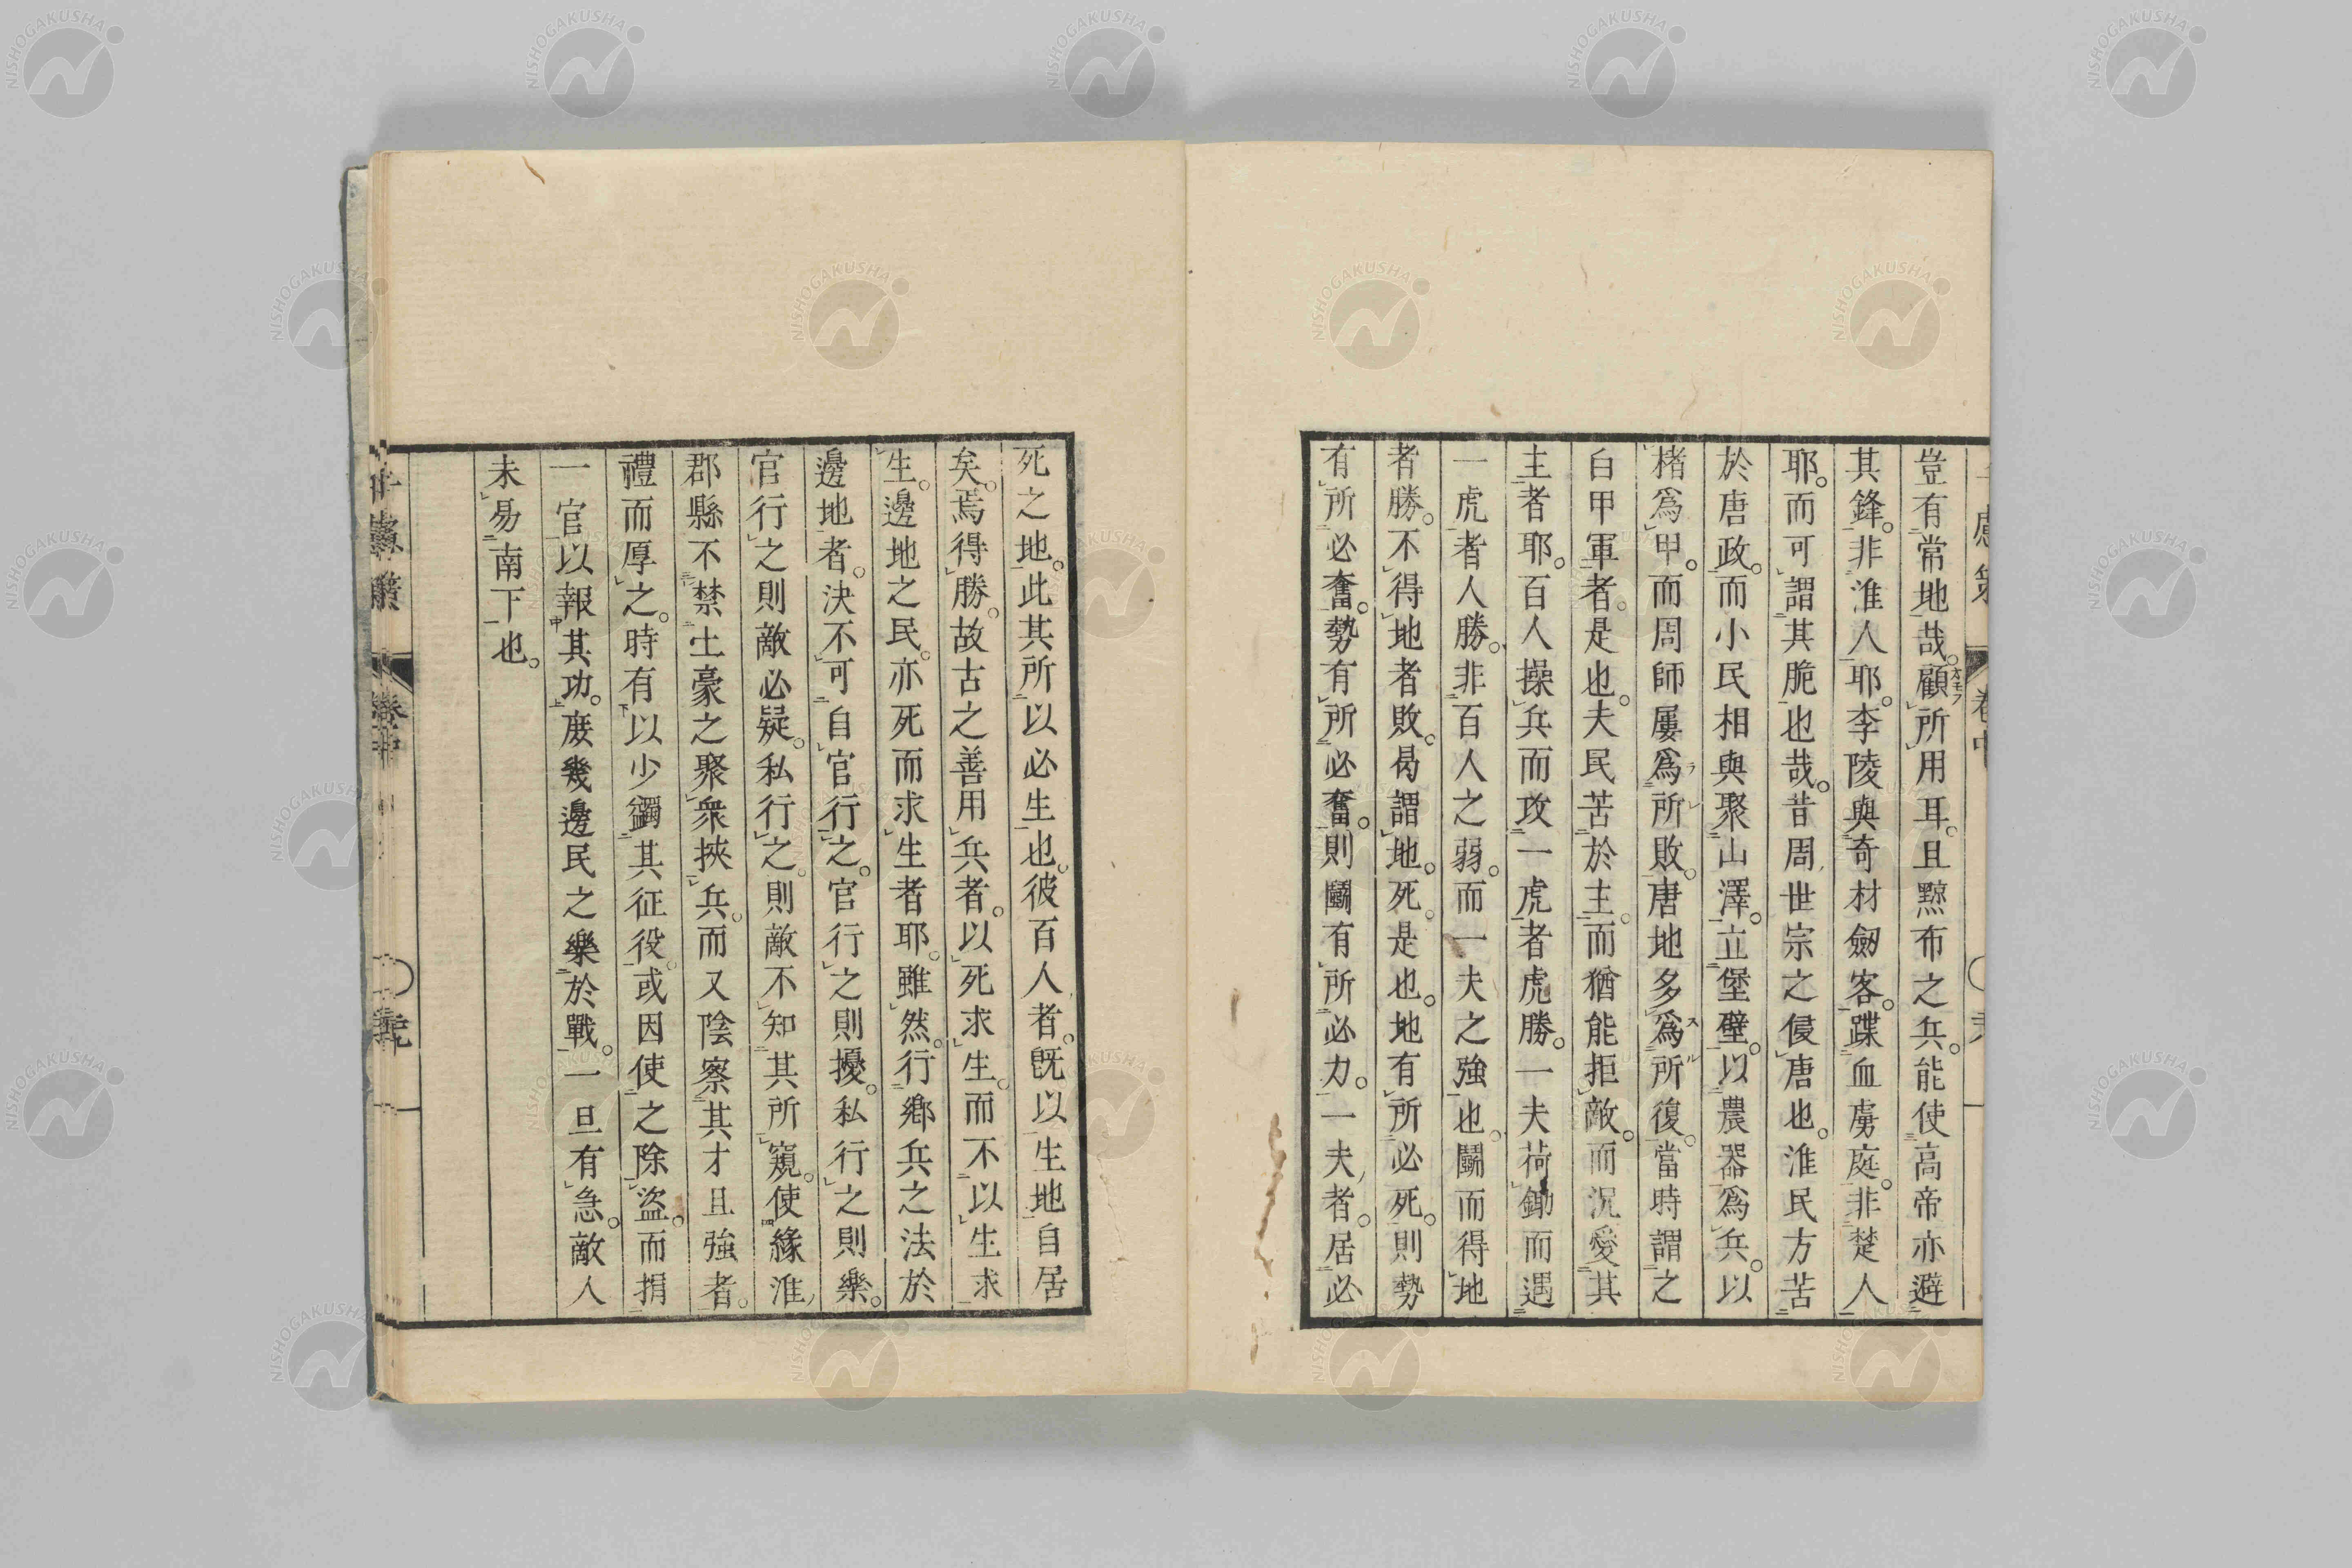 豈有常地哉。顧所用耳。且黥布之兵。能使高帝亦避
其鋒。非淮人耶。李陵與奇材劒客。蹀血虜庭。非楚人
耶。而可謂其脆也哉。昔周世宗之侵唐也。淮民方苦
於唐政。而小民相與聚山澤。立堡壁。以農器爲兵。以
楮爲甲。而周師屢爲所敗。唐地多爲所復。當時謂之
白甲軍者。是也。夫民苦於主。而猶能拒敵。而況愛其
主者耶。百人操兵而攻一虎者虎勝。一夫荷鋤而遇
一虎者人勝。非百人之弱。而一夫之強也。鬭而得地
者勝。不得地者敗。曷謂地。死是也。地有所必死。則勢
有所必奮。勢有所必奮。則鬭有所必力。一夫者。居必
死之地。此其所以必生也。彼百人者。旣以生地自居
矣。焉得勝。故古之善用兵者。以死求生。而不以生求
生。邊地之民。亦死而求生者耶。雖然。行鄉兵之法於
邊地者。決不可自官行之。官行之則擾。私行之則樂。
官行之則敵必疑。私行之。則敵不知其所窺。使緣淮
郡縣不禁土豪之聚衆挾兵。而又陰察其才且強者。
禮而厚之。時有以少蠲其征役。或因使之除盜。而捐
一官以報其功。庶幾邊民之樂於戰。一旦有急。敵人
未易南下也。
NISHOGAKUSHA